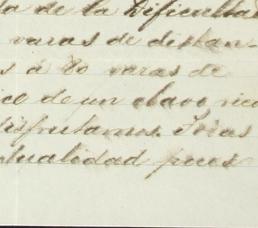 de la Dificultad
varas de distan-
s á 80 varas de
ico de un clavo rico
disfrutamos. Todas
tualidad pues